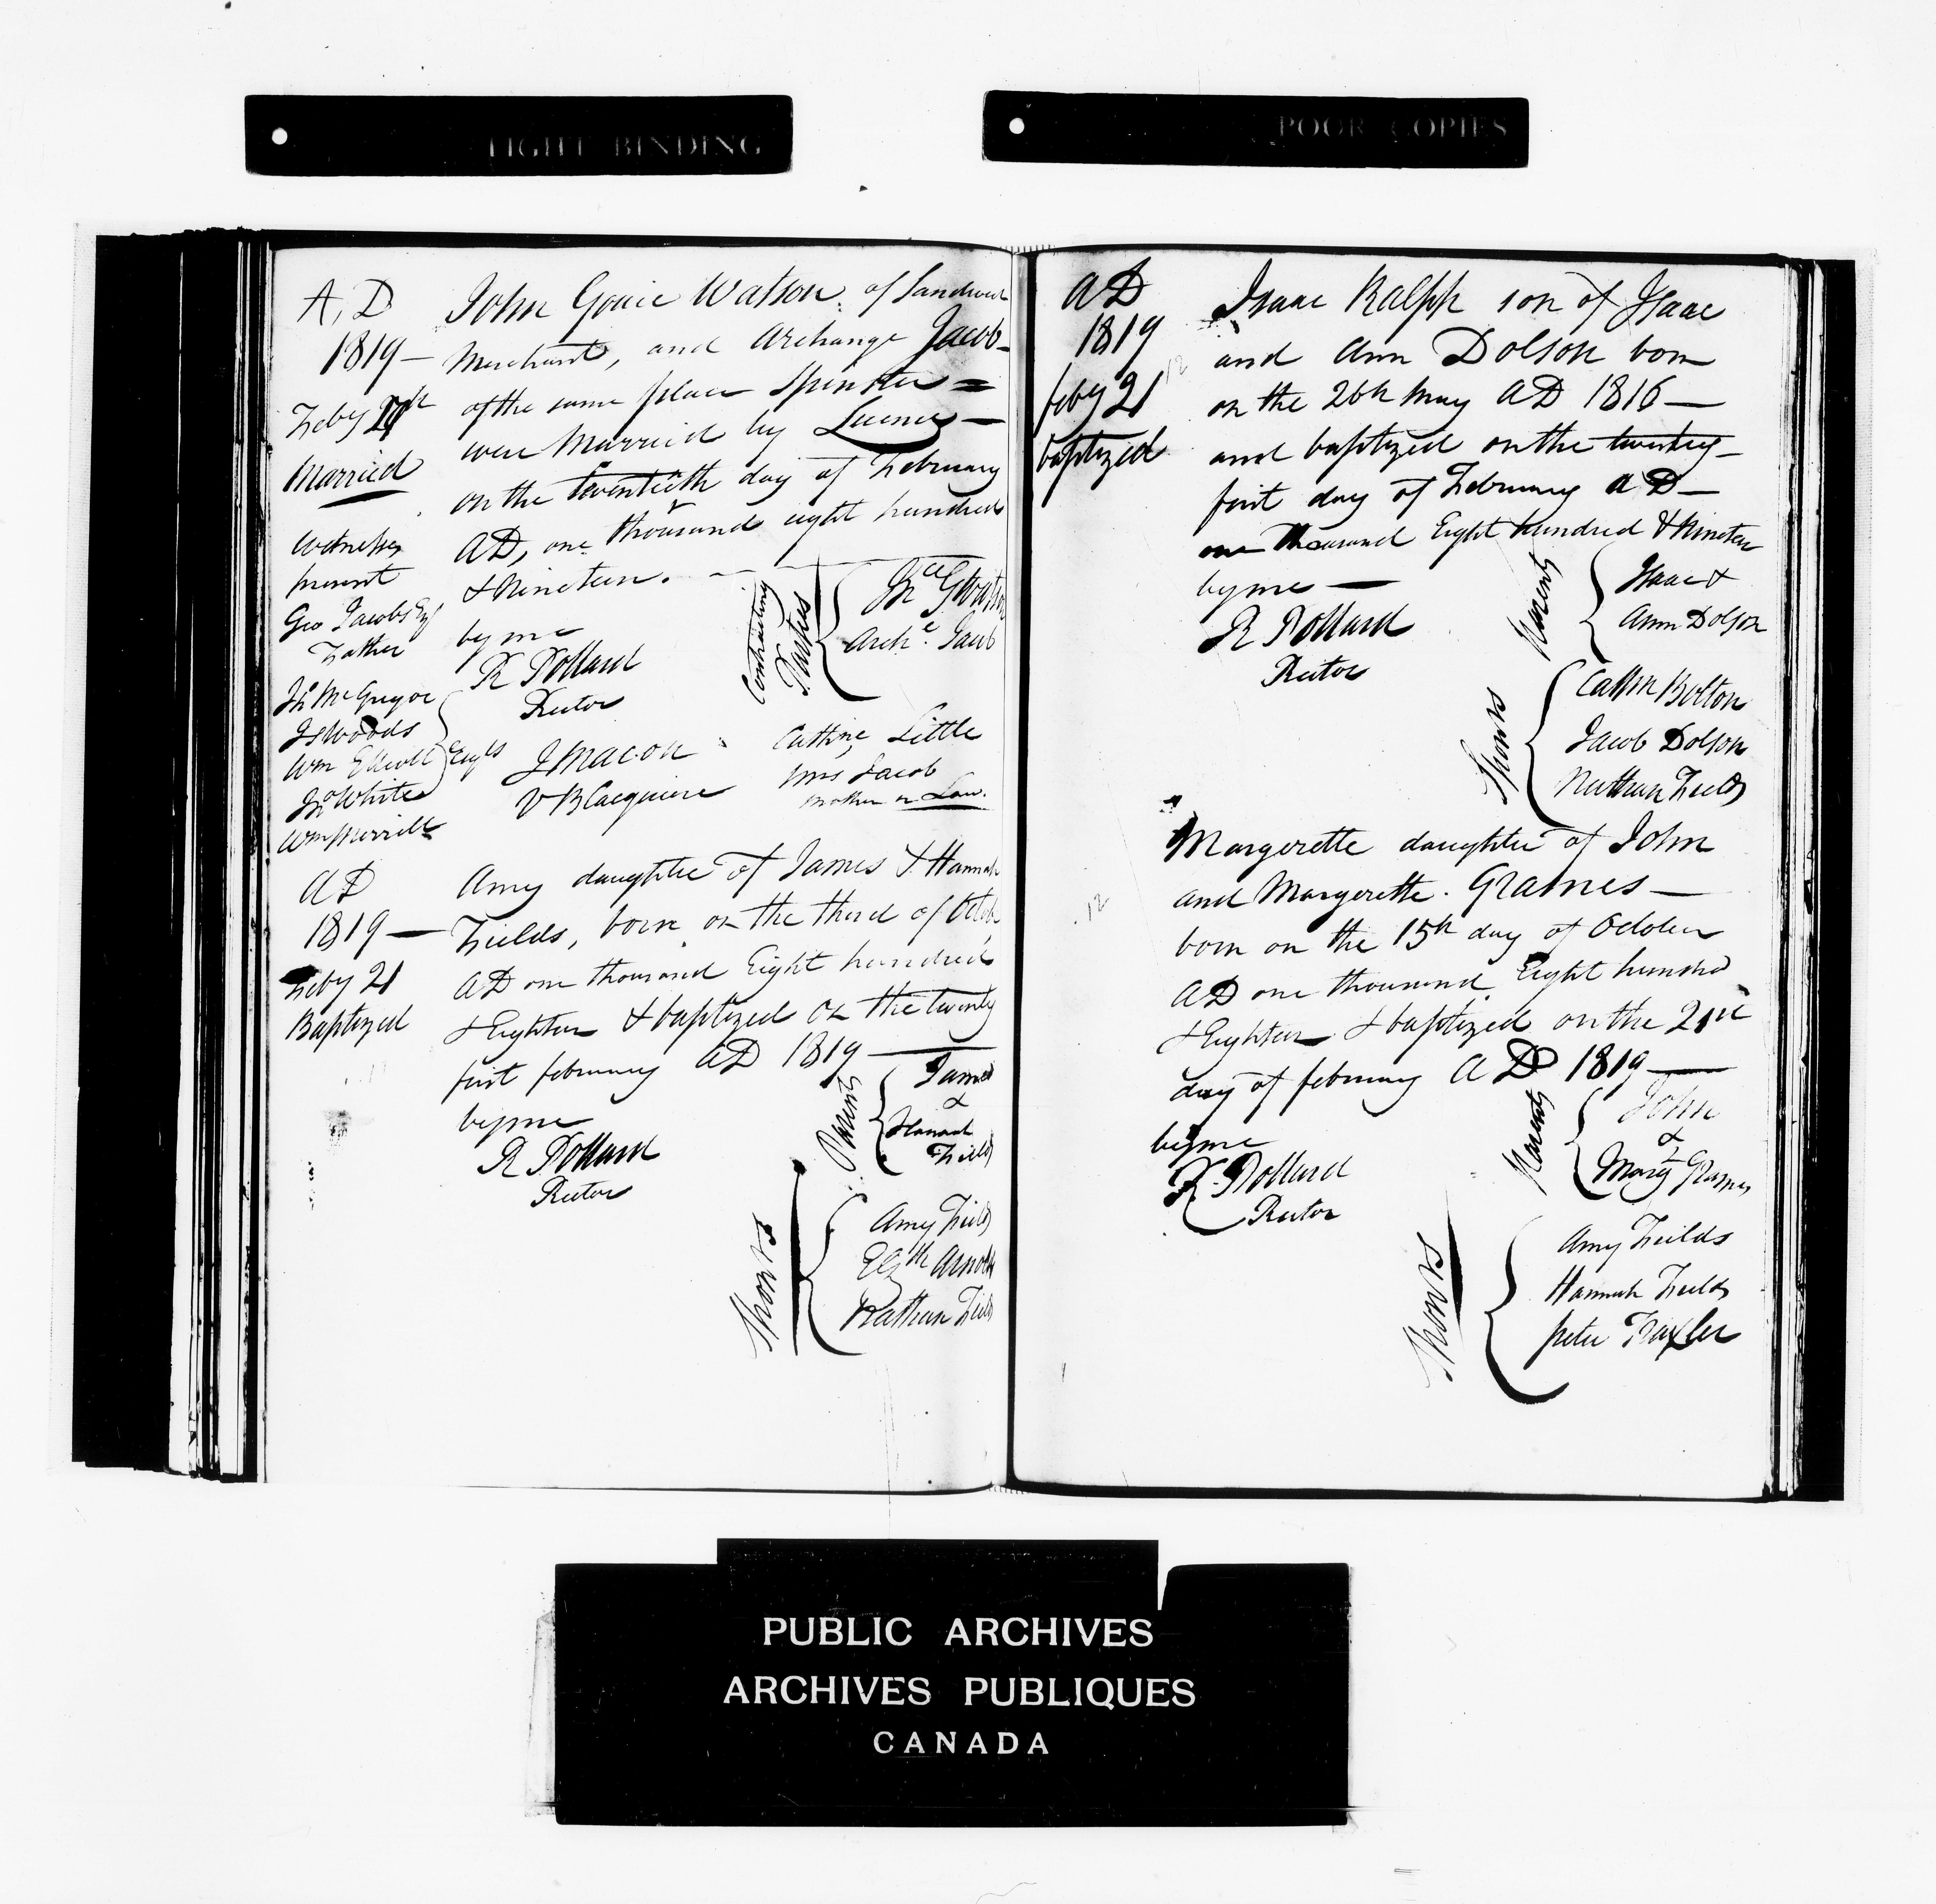 TIGHT BINDING
POOR COPIES
A, D
1819 —
Feby
Married
Witnesses
present
Geo Jacobs Esq
Father
Jn McGregor
Js Woods
Wm Elliott
Jno White
Wm Merrill
Esqrs
John Gouie Watson of Sandwich
Merchant, and Archange Jacob
of the same place Spinster =
were Married by Licence —
on the twentieth day of February
AD, one thousand eight hundred
& Nineteen. —
by me
R Pollard
Rector
Contracting
Parties
Jn G Watson
Arch.e Jacob
J Macon
Cathne Little
Mrs Jacob
Mother in Law.
AD
1819 —
Feby 21
Baptized
Amy daughter of James & Hannah
Fields, born on the third of Octob
AD one thousand Eight hundred
& Eighteen & baptized on the twenty
first february AD 1819 —
by me
R Pollard
Rector
Parents
James
&
Hannah
Fields
Sponrs
Amy Fields
Elizth Arnold
Nathan Fields
AD
1819
feby 21
baptized
12
Isaac Ralph son of Isaac
and Ann Dolson born
on the 26th May AD 1816 —
and baptized on the twenty-
first day of February AD —
one Thousand Eight hundred & Nineteen
by me —
R Pollard
Rector
Parents
Isaac &
Ann Dolson
Sponrs
Cathn Bolton
Jacob Dolson
Nathan Fields
12
Margerette daughter of John
and Margerette. Grames —
born on the 15th day of October
AD one thousand Eight hundred
& Eighteen & baptized on the 21st
day of february AD 1819 —
by me
R. Pollard
Rector
Parents
John
&
Margt Grames
Sponrs
Amy Fields
Hannah Fields
peter Traxler
PUBLIC ARCHIVES
ARCHIVES PUBLIQUES
CANADA